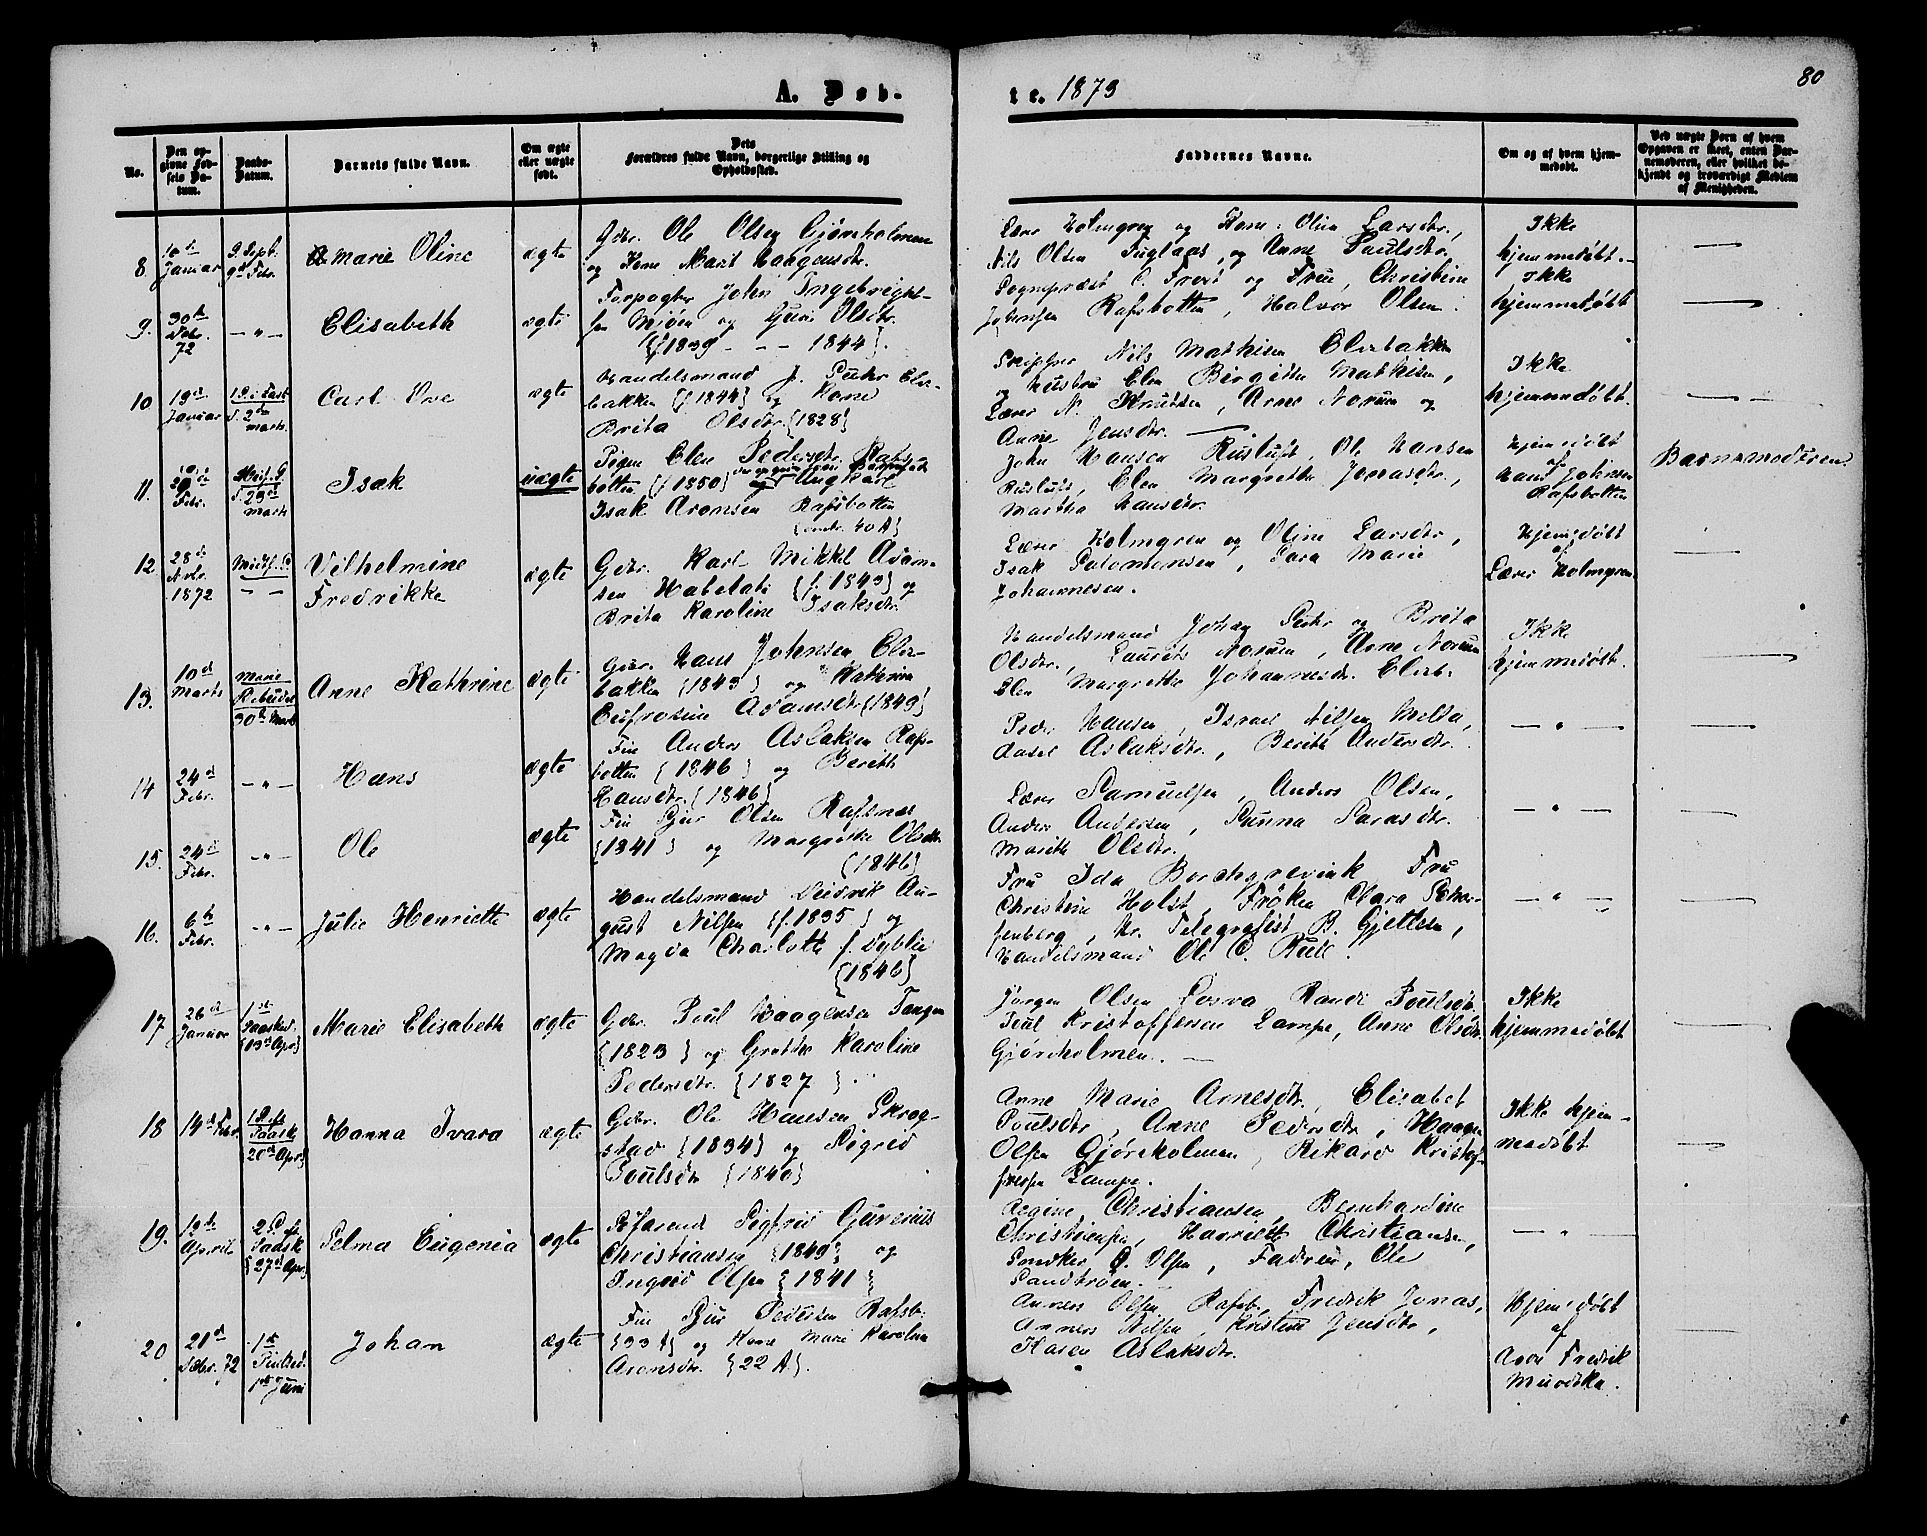 A. Døb-
te. 1873
80
No.
Den op-
givne Fød-
sels Da-
tum.
Daabs-
Datum.
Barnets fulde Navn.
Om ægte
eller uægte
født.
Dets
Forældres fulde Navn, borgerlige Stilling og
Opholdssted.
Faddernes Navne.
Om og af hvem hjem-
medøbt.
Ved uægte Børn af hvem
Opgaven er skeet, enten Bar-
nemoderen, eller hvilket be-
kjendt og troværdigt Medlem
af Menigheden.
8.
Januar
9de Febr.
Marie Oline
ægte
Gdbr. Ole Olsen Gjørnholmen
og Kone Marit Haagensdtr.
Lærer Holmgren og Kone Oline Larsdtr.,
Nils Olsen Fuglaas, og Anne Paulsdtr.
Ikke
hjemmedøbt.
9.
30te
72
— " —
Elisabeth
ægte
Forpagter John Ingebrigt-
sen Mjøen og Guri Olsdtr.
{f. 1839 - - - 1844}.
Sognepræst C. Frost og Frue, Christine
Johnsen Rafsbotten, Halvor Olsen.
Ikke
hjemmedøbt
10
19de
Januar
S. 2den
Marts
Carl Ove
ægte
Handelsmand J. Buhr Elve-
bakken {f. 1844} og Kone
Brita Olsdtr. {1828}
Skipper Nils Mathisen Elvebakken
og Hustru Elen Birgitte Mathisen,
Lærer N. Knutsen, Arne Norum og
Anne Jensdtr.
Ikke
hjemmedøbt.
11.
Febr.
Midf. S.
S. 23de
Marts
Isak
uægte
Pigen Elen Pedersdtr. Rafs-
botten {f. 1850} og Ungkarl
Isak Aronsen Rafsbotten
{omtr. 40 A}
John Hansen Rusluft, Ole Hansen
Rusluft, Elen Margrethe Jonasdtr.,
Martha Hansdtr.
Hjemmedøbt
af
Hans Johnsen
Rafsbotten
Barnemoderen.
12.
28de
Novbr.
1872
Midf. S.
— —
Vilhelmine
Fredrikke
ægte
Gdbr. Karl Mikkel Adam-
sen Habelati {f. 1843} og
Brita Karoline Isaksdtr.
Lærer Holmgren og Oline Larsdtr,
Isak Salomonsen, Sara Marie
Johannesen.
Hjemmedøbt
af
Lærer Holmgren
13.
10de
Marts
Marie
Bebudel.
30te Marts
Anne Kathrine
ægte
Gdbr. Hans Johnsen Elve-
bakken {1843} og Kathrine
Eufrosine Adamsdtr {1849}
Handelsmand Johan Buhr og Brita
Olsdtr., Laurits Norum, Arne Norum
Elen Margrethe Johannesdtr. Elveb.
Ikke
hjemmedøbt.
14
24de
Febr.
— " —
Hans
ægte
Fin Anders Aslaksen Rafs-
botten {1846} og Berith
Hansdtr. {1846}
Peder Hansen, Israel Nilsen Melta,
Aslaksdtr., Berith Andersdtr.
— " —
15.
24de
Febr.
— " —
Ole
ægte
Fin Sjur Olsen Rafsnæs
{1841} og Margrethe Olsdtr.
{1846}
Lærer Samuelsen, Anders Olsen,
Anders Andersen, Sunna Larsdtr.
Marith Olsdtr.
— " —
16.
6te
Febr.
— " —
Julie Henriette
ægte
Handelsmand Didrik Au-
gust Nilsen {f. 1835} og
Magda Charlotte f. Dyblie
{1846}
Fru Ida Borchgrevink, Fru
Christine Holst, Frøken Clara Schar-
fenberg, Hr. Telegrafist B. Gjetsen,
Handelsmand Ole C. Rule.
— " —
17.
26de
Januar
1ste
Paaskd.
{13de Apr}
Marie Elisabeth
ægte
Gdbr. Poul Haagensen Tangen
{1823} og Grethe Karoline
Pedersdtr. {1827}.
Jørgen Olsen Losva, Randi Poulsdtr.
Poul Kristoffersen Lampe, Anne Olsdtr.
Gjørnholmen.
Ikke
hjemmedøbt
18
14de Febr.
1 S. eft.
Paask
20de Apr.
Hanna Ivara
ægte
Gdbr. Ole Hansen Skrog-
stad {1834} og Sigrid
Poulsdtr {1840}
Anne Marie Arnesdtr., Elisabet
Poulsdtr, Anne Pedersdtr, Haagen
Olsen Gjørnholmen, Rikard Kristof-
fersen Lampe.
Ikke hjem-
medøbt
19.
12te
April
2 S. eft
Paask
{27de Apr}
Selma Eugenia
ægte
Søfarend Sigfrid Guverius
Christiansen {1849} og
Ingrid Olsen {1841}
Regine Christiansen, Bernhardine
Christiansen, Harriett Christiansen,
Snedker O. Olsen, Fadren, Ole
Sandstrøm.
— " —
20
21de
Decbr. 72
1ste
Pintsed.
1ste Juni
Johan
ægte
Fin Sjur Pedersen Rafsb.
{33 A} og Kone Marie Karoline
Aronsdtr. {22 A}.
Anders Olsen Rafsb., Fredrik Jonas,
Anders Nilsen, Kristine Jensdtr,
Karen Aslaksdtr.
Hjemmedøbt
af
Fredrik